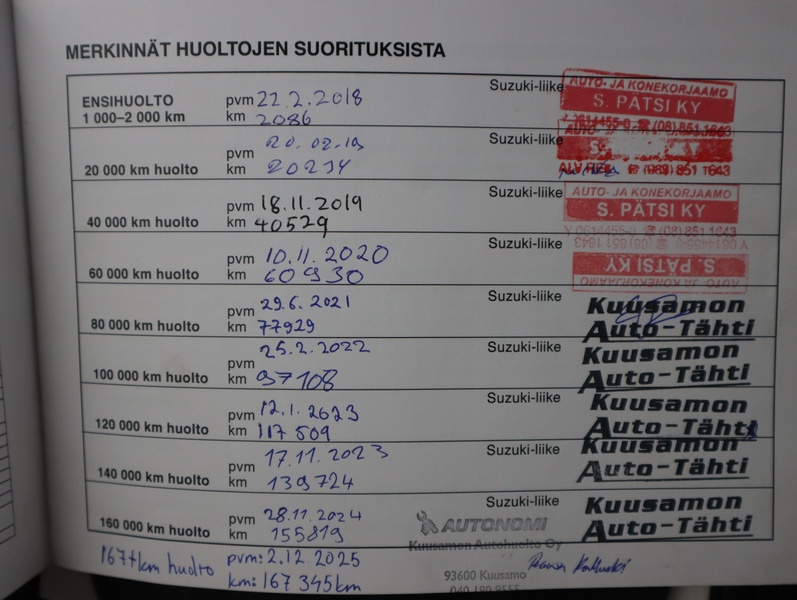 MERKINNÄT HUOLTOJEN SUORITUKSISTA
ENSIHUOLTO pvm 22.2.2018 Suzuki-liike AUTO- JA KONEKORJAAMO
1 000–2 000 km km 2086 S. PÄTSI KY
Y 0614455-0 ☎ (08) 851 1643
pvm 20.02.19 Suzuki-liike AUTO-
20 000 km huolto km 20234 ☎ (089) 851 1643
pvm 18.11.2019 Suzuki-liike AUTO- JA KONEKORJAAMO
40 000 km huolto km 40529 S. PÄTSI KY
Y 0614455-0 ☎ (08) 851 1643
pvm 10.11.2020 Suzuki-liike Y 0614455-0 ☎ (08) 851 1643
60 000 km huolto km 60930 S. PÄTSI KY
AUTO- JA KONEKORJAAMO
pvm 29.6.2021 Suzuki-liike Kuusamon
80 000 km huolto km 77929 Auto-Tähti
pvm 25.2.2022 Suzuki-liike Kuusamon
100 000 km huolto km 97108 Auto-Tähti
pvm 12.1.2023 Suzuki-liike Kuusamon
120 000 km huolto km 117509 Auto-Tähti
pvm 17.11.2023 Suzuki-liike Kuusamon
140 000 km huolto km 139724 Auto-Tähti
pvm 28.11.2024 Suzuki-liike Kuusamon
160 000 km huolto km 155819 AUTONOMI Auto-Tähti
Kuusamon Autohuolto Oy
167tkm huolto pvm: 2.12.2025
km: 167 345km 93600 Kuusamo